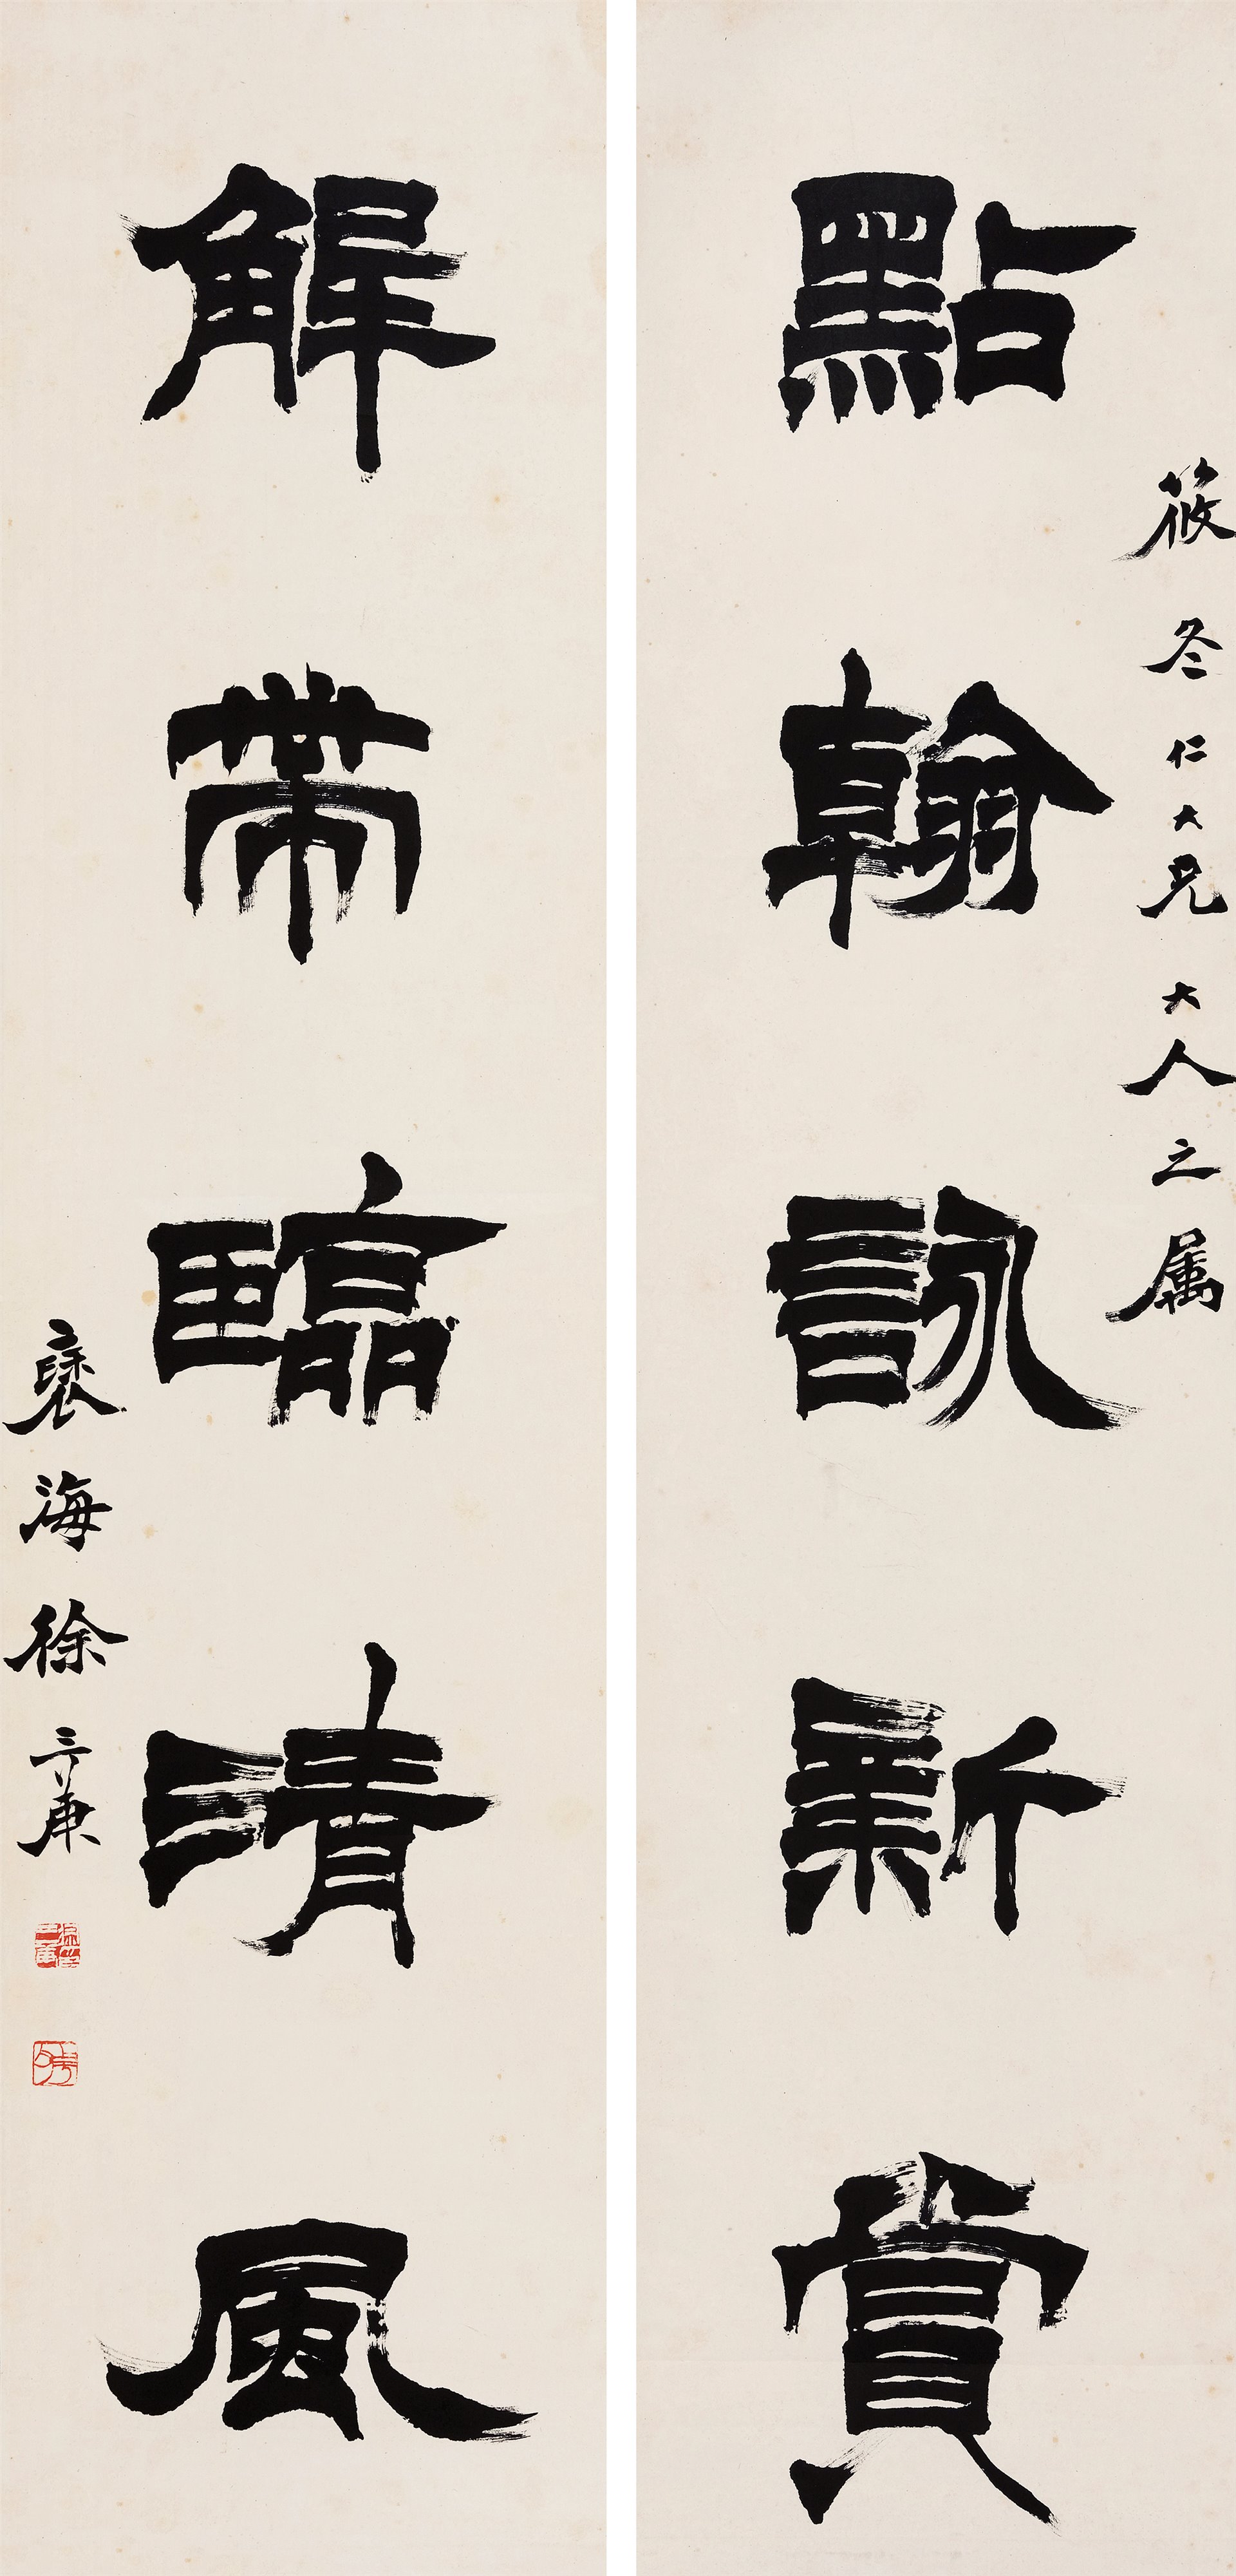 點翰詠新賞
筱冬仁大兄大人之属
解帶臨晴風
褎海徐三庚